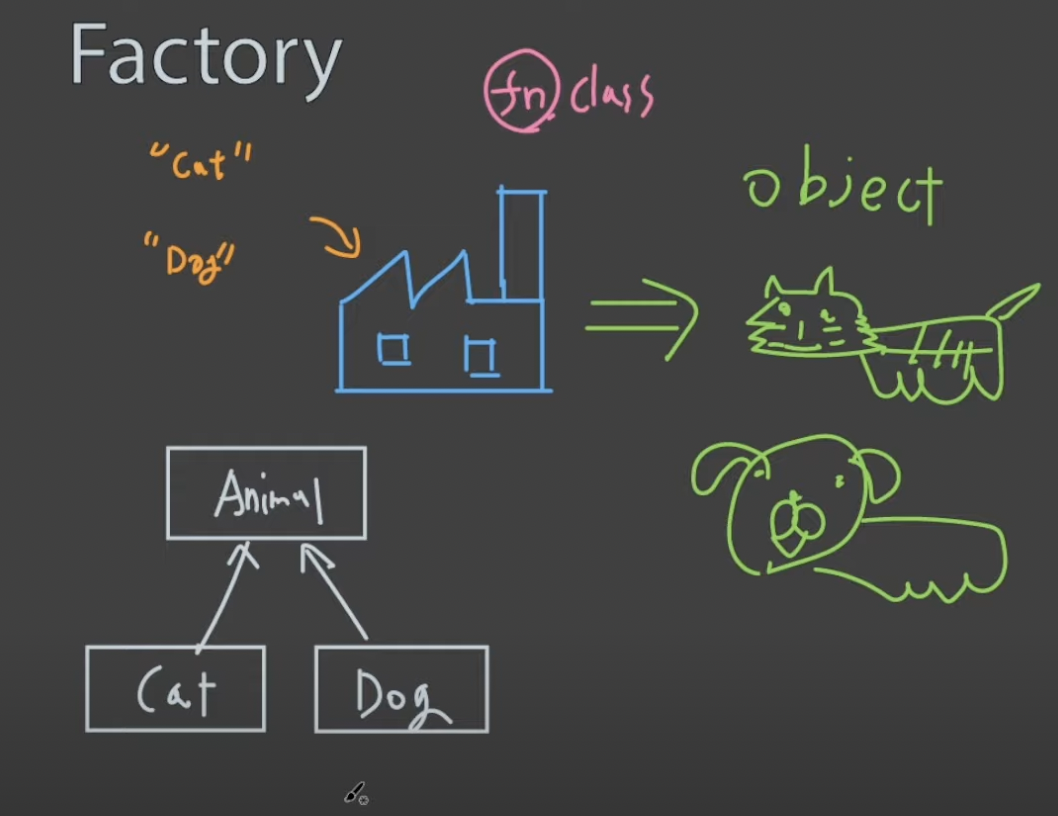 Factory
fn class
"Cat"
object
"Dog"
Animal
Cat
Dog